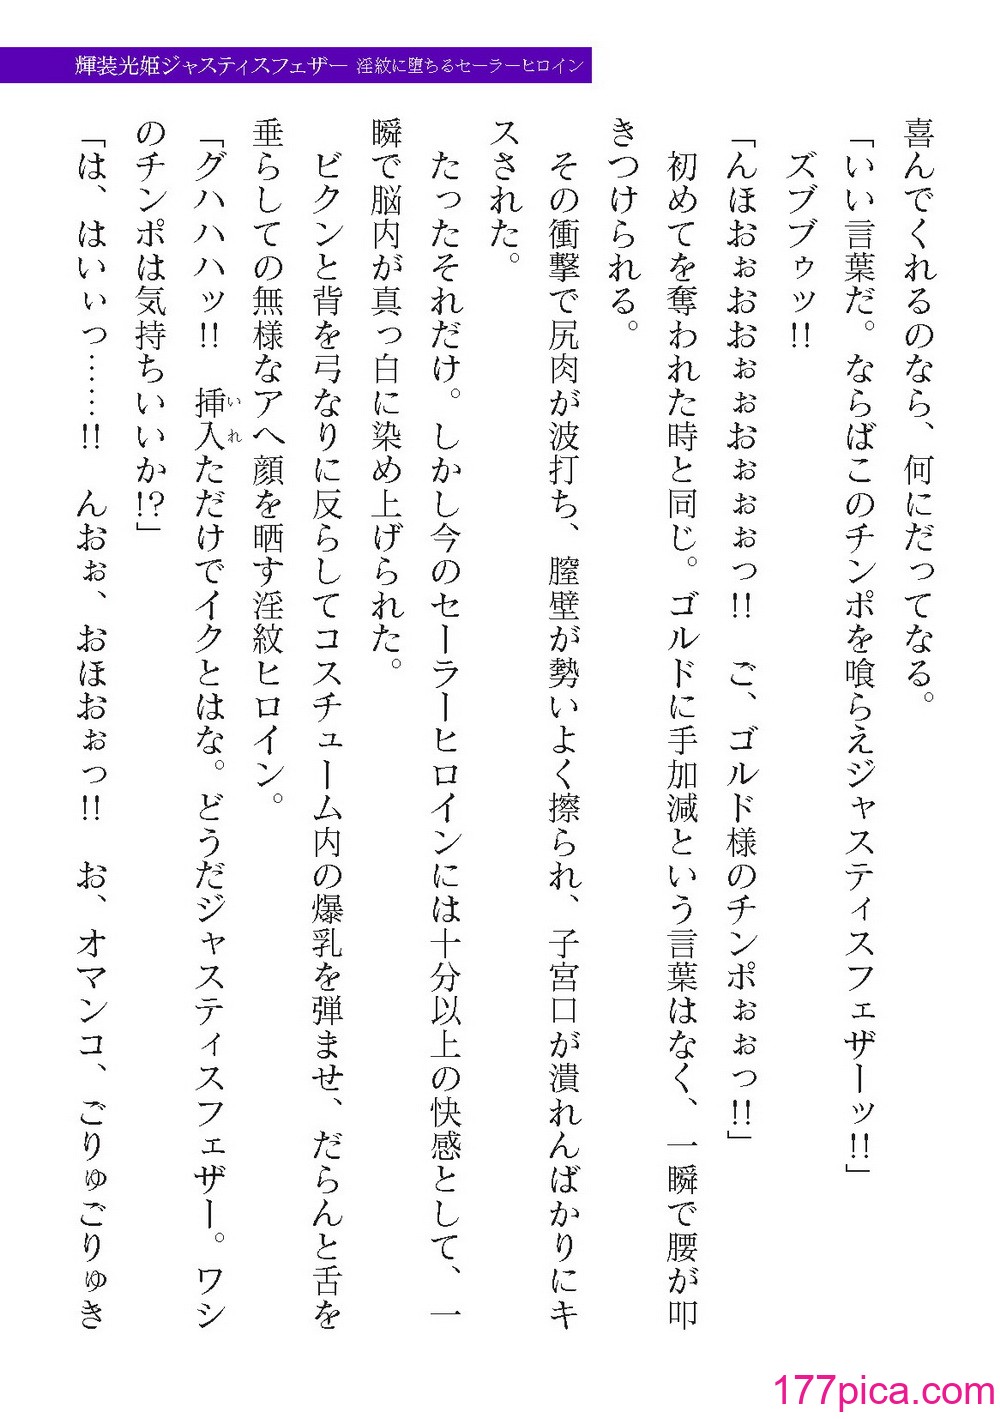 輝装光姫ジャスティスフェザー 淫紋に堕ちるセーラーヒロイン
喜んでくれるのなら、何にだってなる。
「いい言葉だ。ならばこのチンポを喰らえジャスティスフェザーッ!!」
ズブブゥッ!!
「んほおぉおおぉぉおぉぉぉっ!!　ご、ゴルド様のチンポぉぉっ!!」
初めてを奪われた時と同じ。ゴルドに手加減という言葉はなく、一瞬で腰が叩
きつけられる。
その衝撃で尻肉が波打ち、膣壁が勢いよく擦られ、子宮口が潰れんばかりにキ
スされた。
たったそれだけ。しかし今のセーラーヒロインには十分以上の快感として、一
瞬で脳内が真っ白に染め上げられた。
ビクンと背を弓なりに反らしてコスチューム内の爆乳を弾ませ、だらんと舌を
垂らしての無様なアヘ顔を晒す淫紋ヒロイン。
「グハハハッ!!　挿入いれただけでイクとはな。どうだジャスティスフェザー。ワシ
のチンポは気持ちいいか!?」
「は、はいぃっ……!!　んおぉ、おほおぉっ!!　お、オマンコ、ごりゅごりゅき
177pica.com